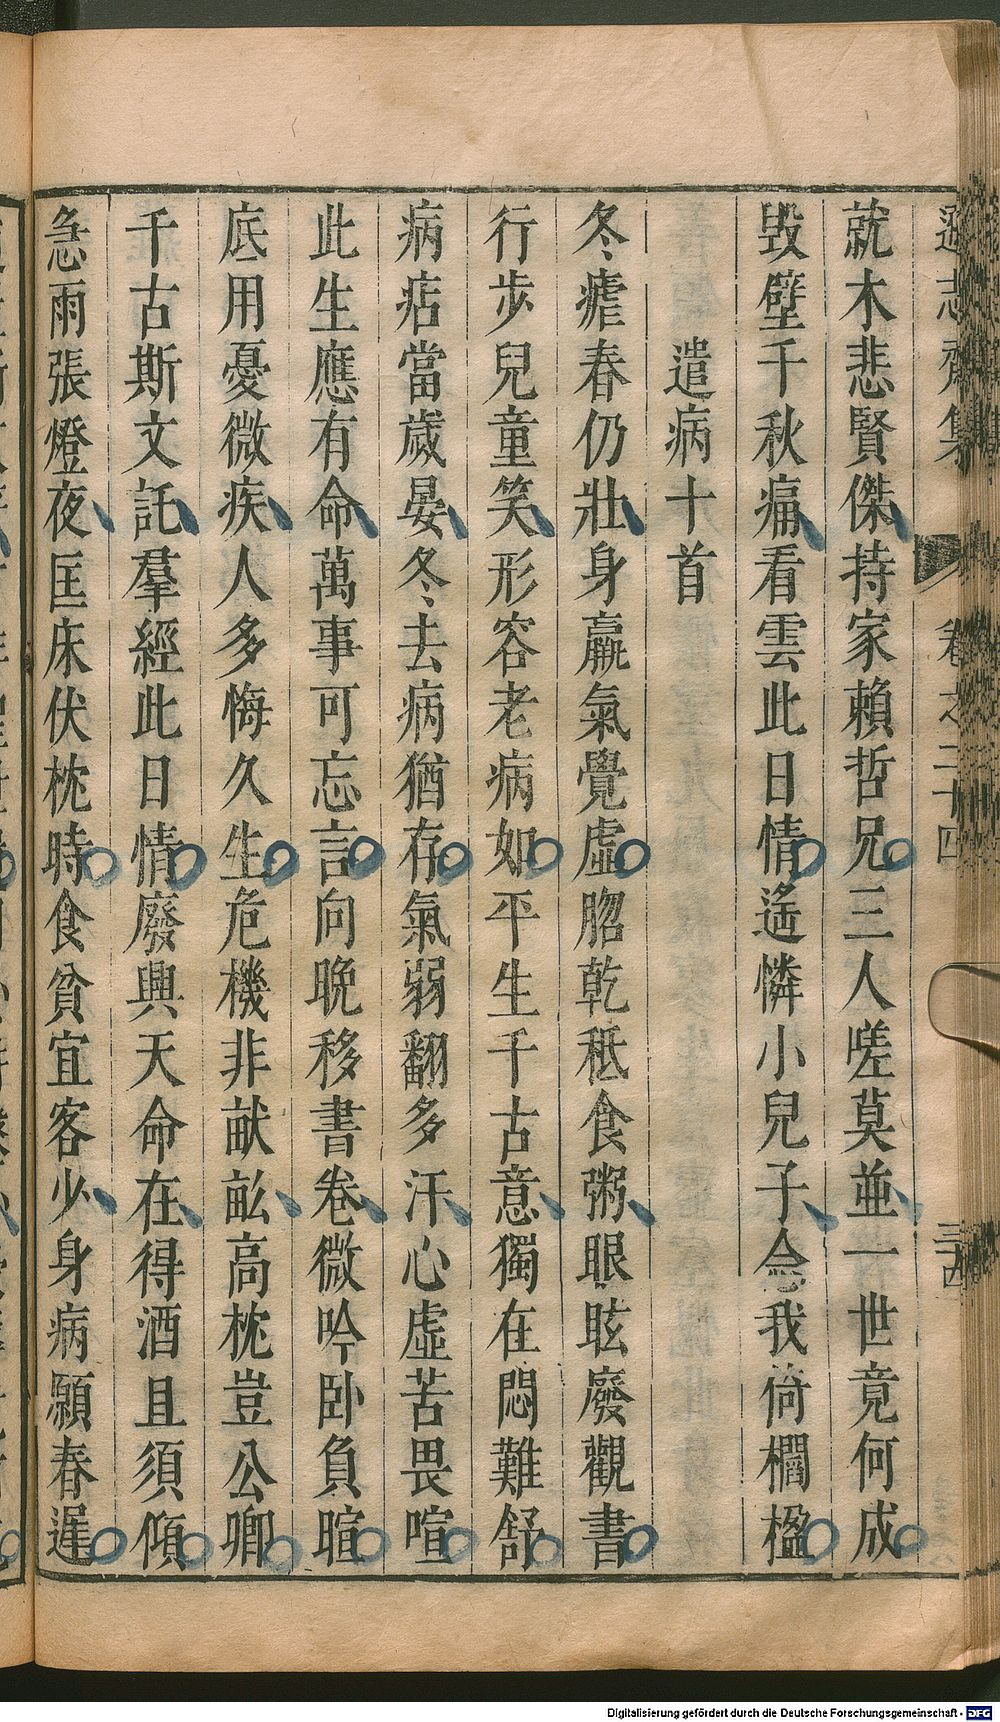 遜志齋集 卷之二十四 三四
就木悲賢傑持家賴哲兄三人嗟莫並一世竟何成
毁壁千秋痛看雲此日情遙憐小兒子念我倚欄楹
遣病十首
冬瘧春仍壯身羸氣覺虛䐇乾秪食粥眼眩廢觀書
行步兒童笑形容老病如平生千古意獨在悶難舒
病痁當歲晏冬去病猶存氣弱翻多汗心虛苦畏喧
此生應有命萬事可忘言向晚移書卷微吟卧負暄
底用憂微疾人多悔久生危機非畎畆高枕豈公卿
千古斯文託羣經此日情廢興天命在得酒且須傾
急雨張燈夜匡床伏枕時食貧宜客少身病願春遲
Digitalisierung gefördert durch die Deutsche Forschungsgemeinschaft - DFG